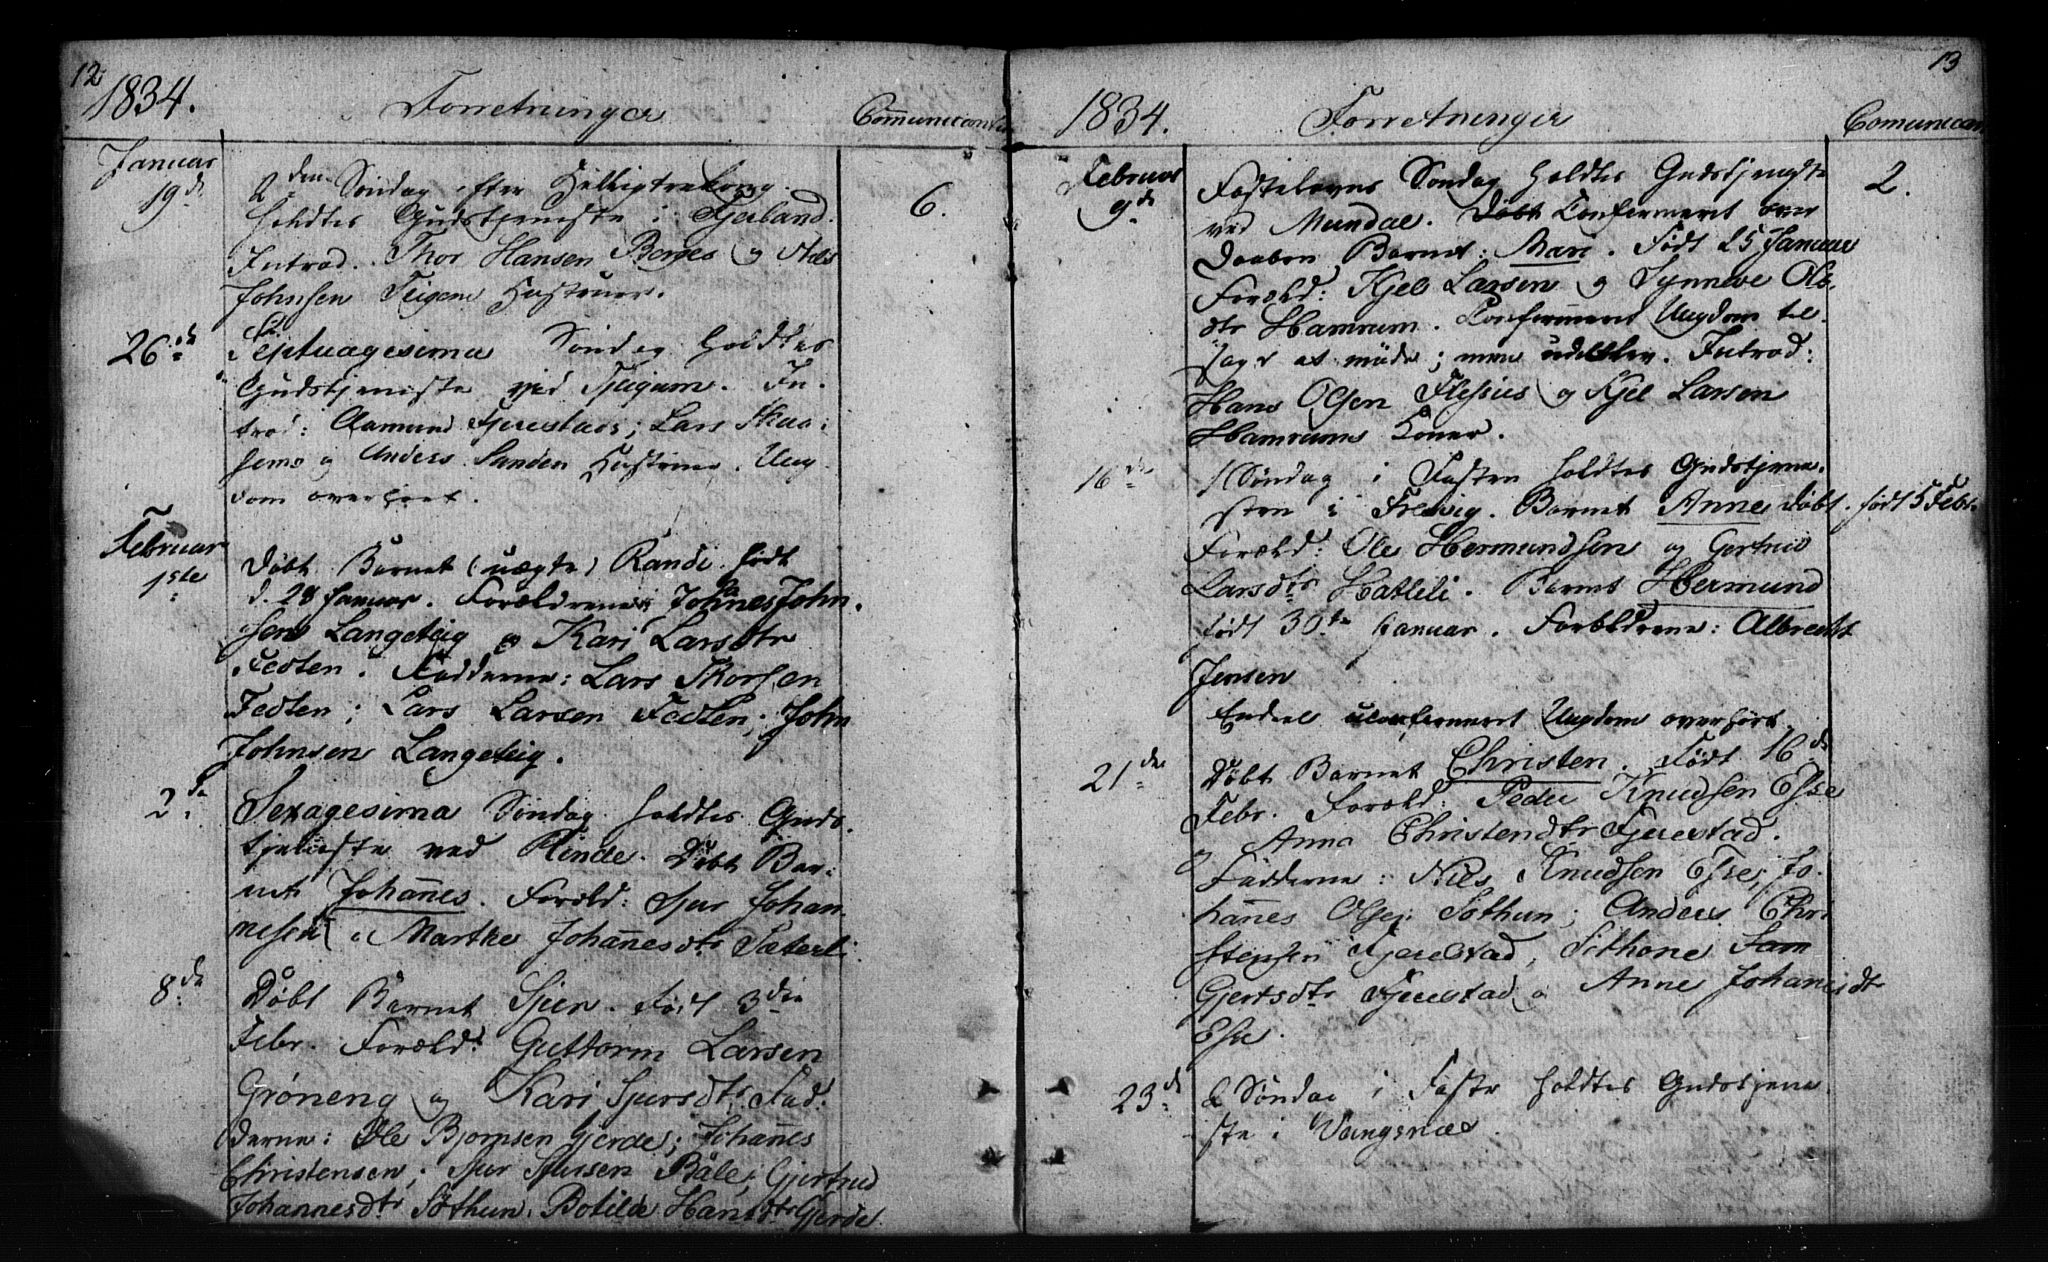 12
1834.
Forretninger
Communicanter
Januar
19de
2den Søndag efter Helligtrekong.
holdtes Gudstjeneste i Fjerland.
Introd. Thor Hansen Berges og
Johnsen Teigens Hustruer.
6.
26de
Septuagesima Søndag holdtes
Gudstjeneste ved Tjugum. In-
trod: Aamund Fjerestads; Lars
og Anders Sanden Hustruer. Ung-
dom overhørt.
Februar
1ste
Døbt Barnet (uægte) Randi født
d. 28 Januar. Forældrene: Johnes John-
sens Langeteig og Kari Larsdtr
Fedten. Fadderne: Lars Thorsen
Fedten; Lars Larsen Fedten; John
Johnsen Langeteig.
2de
Sexagesima Søndag holdtes Guds-
tjeneste ved Rinde. Døbt Bar-
net Johannes. Foræld: Sjur Johan-
nesen og Marthe Johannesdtr Sæterli
8de
Døbt Barnet Sjur. født 3die
Febr. Foræld: Guttorm Larsen
Grøneng og Kari Sjursdtr. Fad-
derne: Ole Bjørnsen Gjerde; Johannes
Christensen; Sjur Sjursen Båle; Gjertrud
Johannesdtr Søthun. Botilde Hansdtr Gjerde
13
1834.
Forretninger
Comunicanter
Februar
9de
Fastelavns Søndag holdtes Gudstjenste
ved Mundal. Døbt Confirmeret over
Daaben Barnet: Mari. Født 25 Januar
Foræld: Kjel Larsen og Synneve Ols-
dtr Hamrum. Confirmeret Ungdom til-
sagt at møde; men udeblev. Introd:
Hans Olsen Flesjes og Kjel Larsen
Hamrums Koner.
2.
16de
1 Søndag i Fasten holdtes Gudstjene-
sten i Fresvig. Barnet Anne døbt. født 5 Febr.
Foræld: Ole Hermundsen og Gertrud
Larsdtr Hatleli. Barnet Hermund
født 30te Januar. Forældrene: Albrecht
Jensen
Endeel uconfirmeret Ungdom overhørt.
21de
Døbt Barnet Christen. Født 16de
Febr. Foræld: Peder Knudsen Esse
og Anna Christendtr Fjerestad.
Fadderne: Niels Knudsen Esse; Jo-
hannes Olsen Søthun; Anders Chri-
stensen Fjerestad, Sithone
Gjertsdtr Fjerestad og Anne Johannesdtr
Esse.
23de
2 Søndag i Faste holdtes Gudstjene-
ste i Vangsnæs.